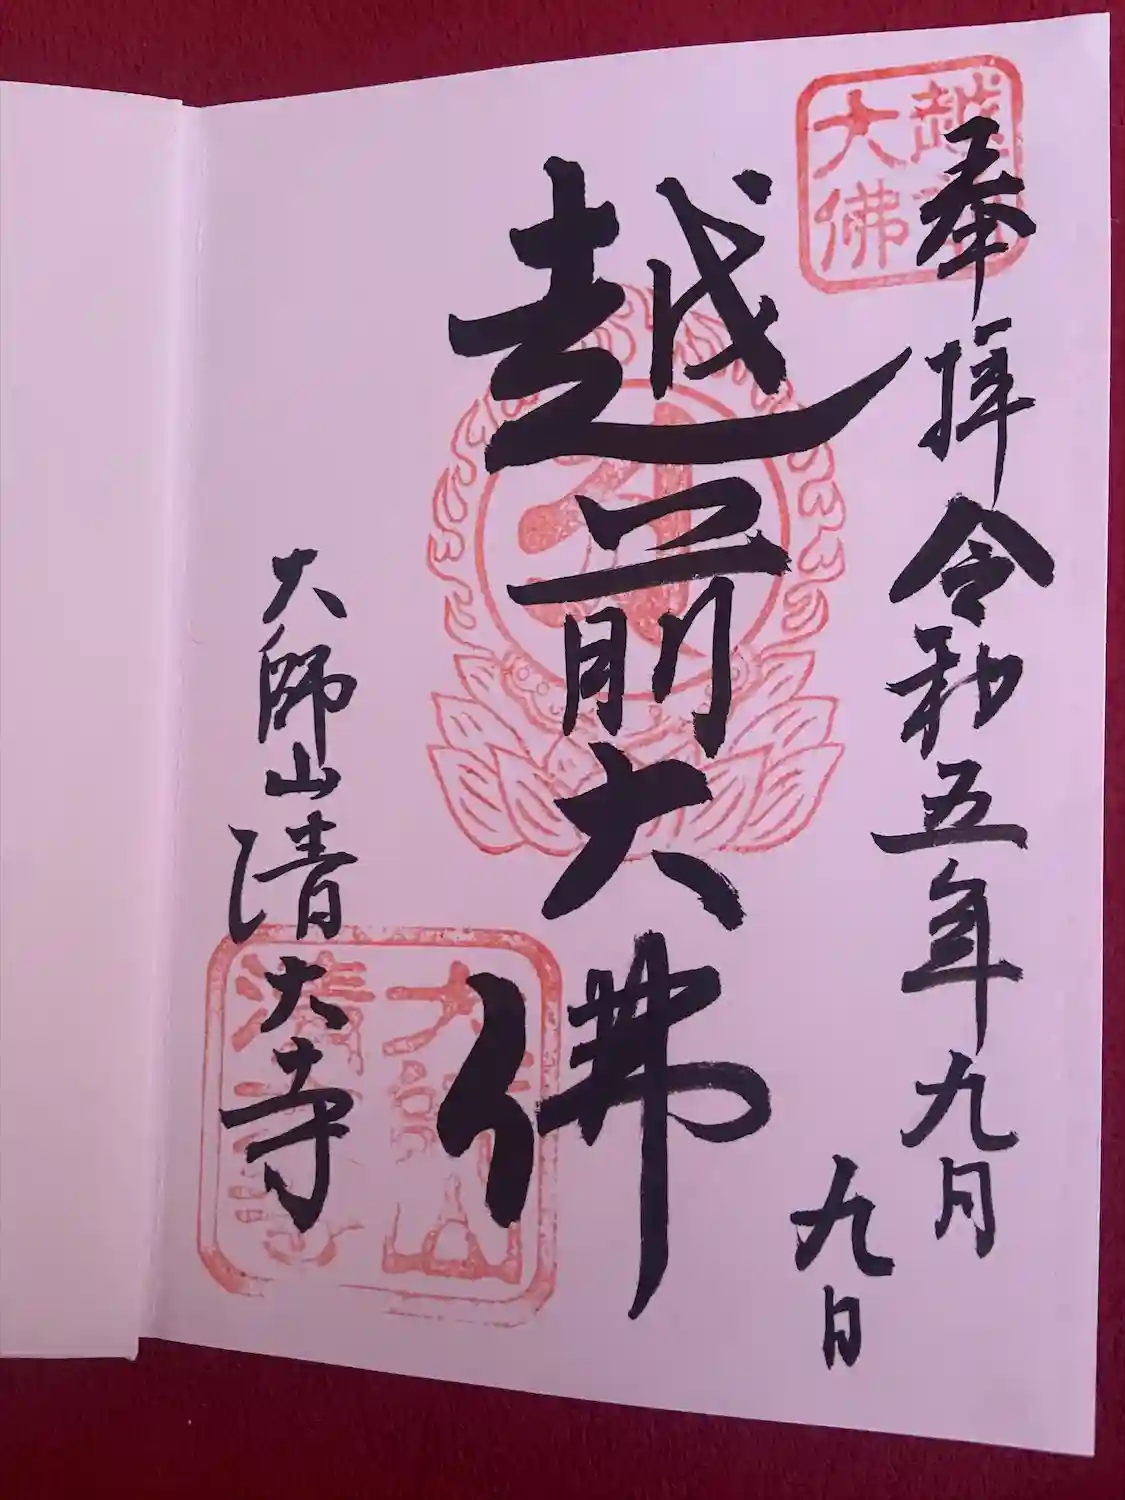 奉拝 令和五年九月
九日
越前大佛
大師山清大寺
越前
大佛
大師山
清大寺